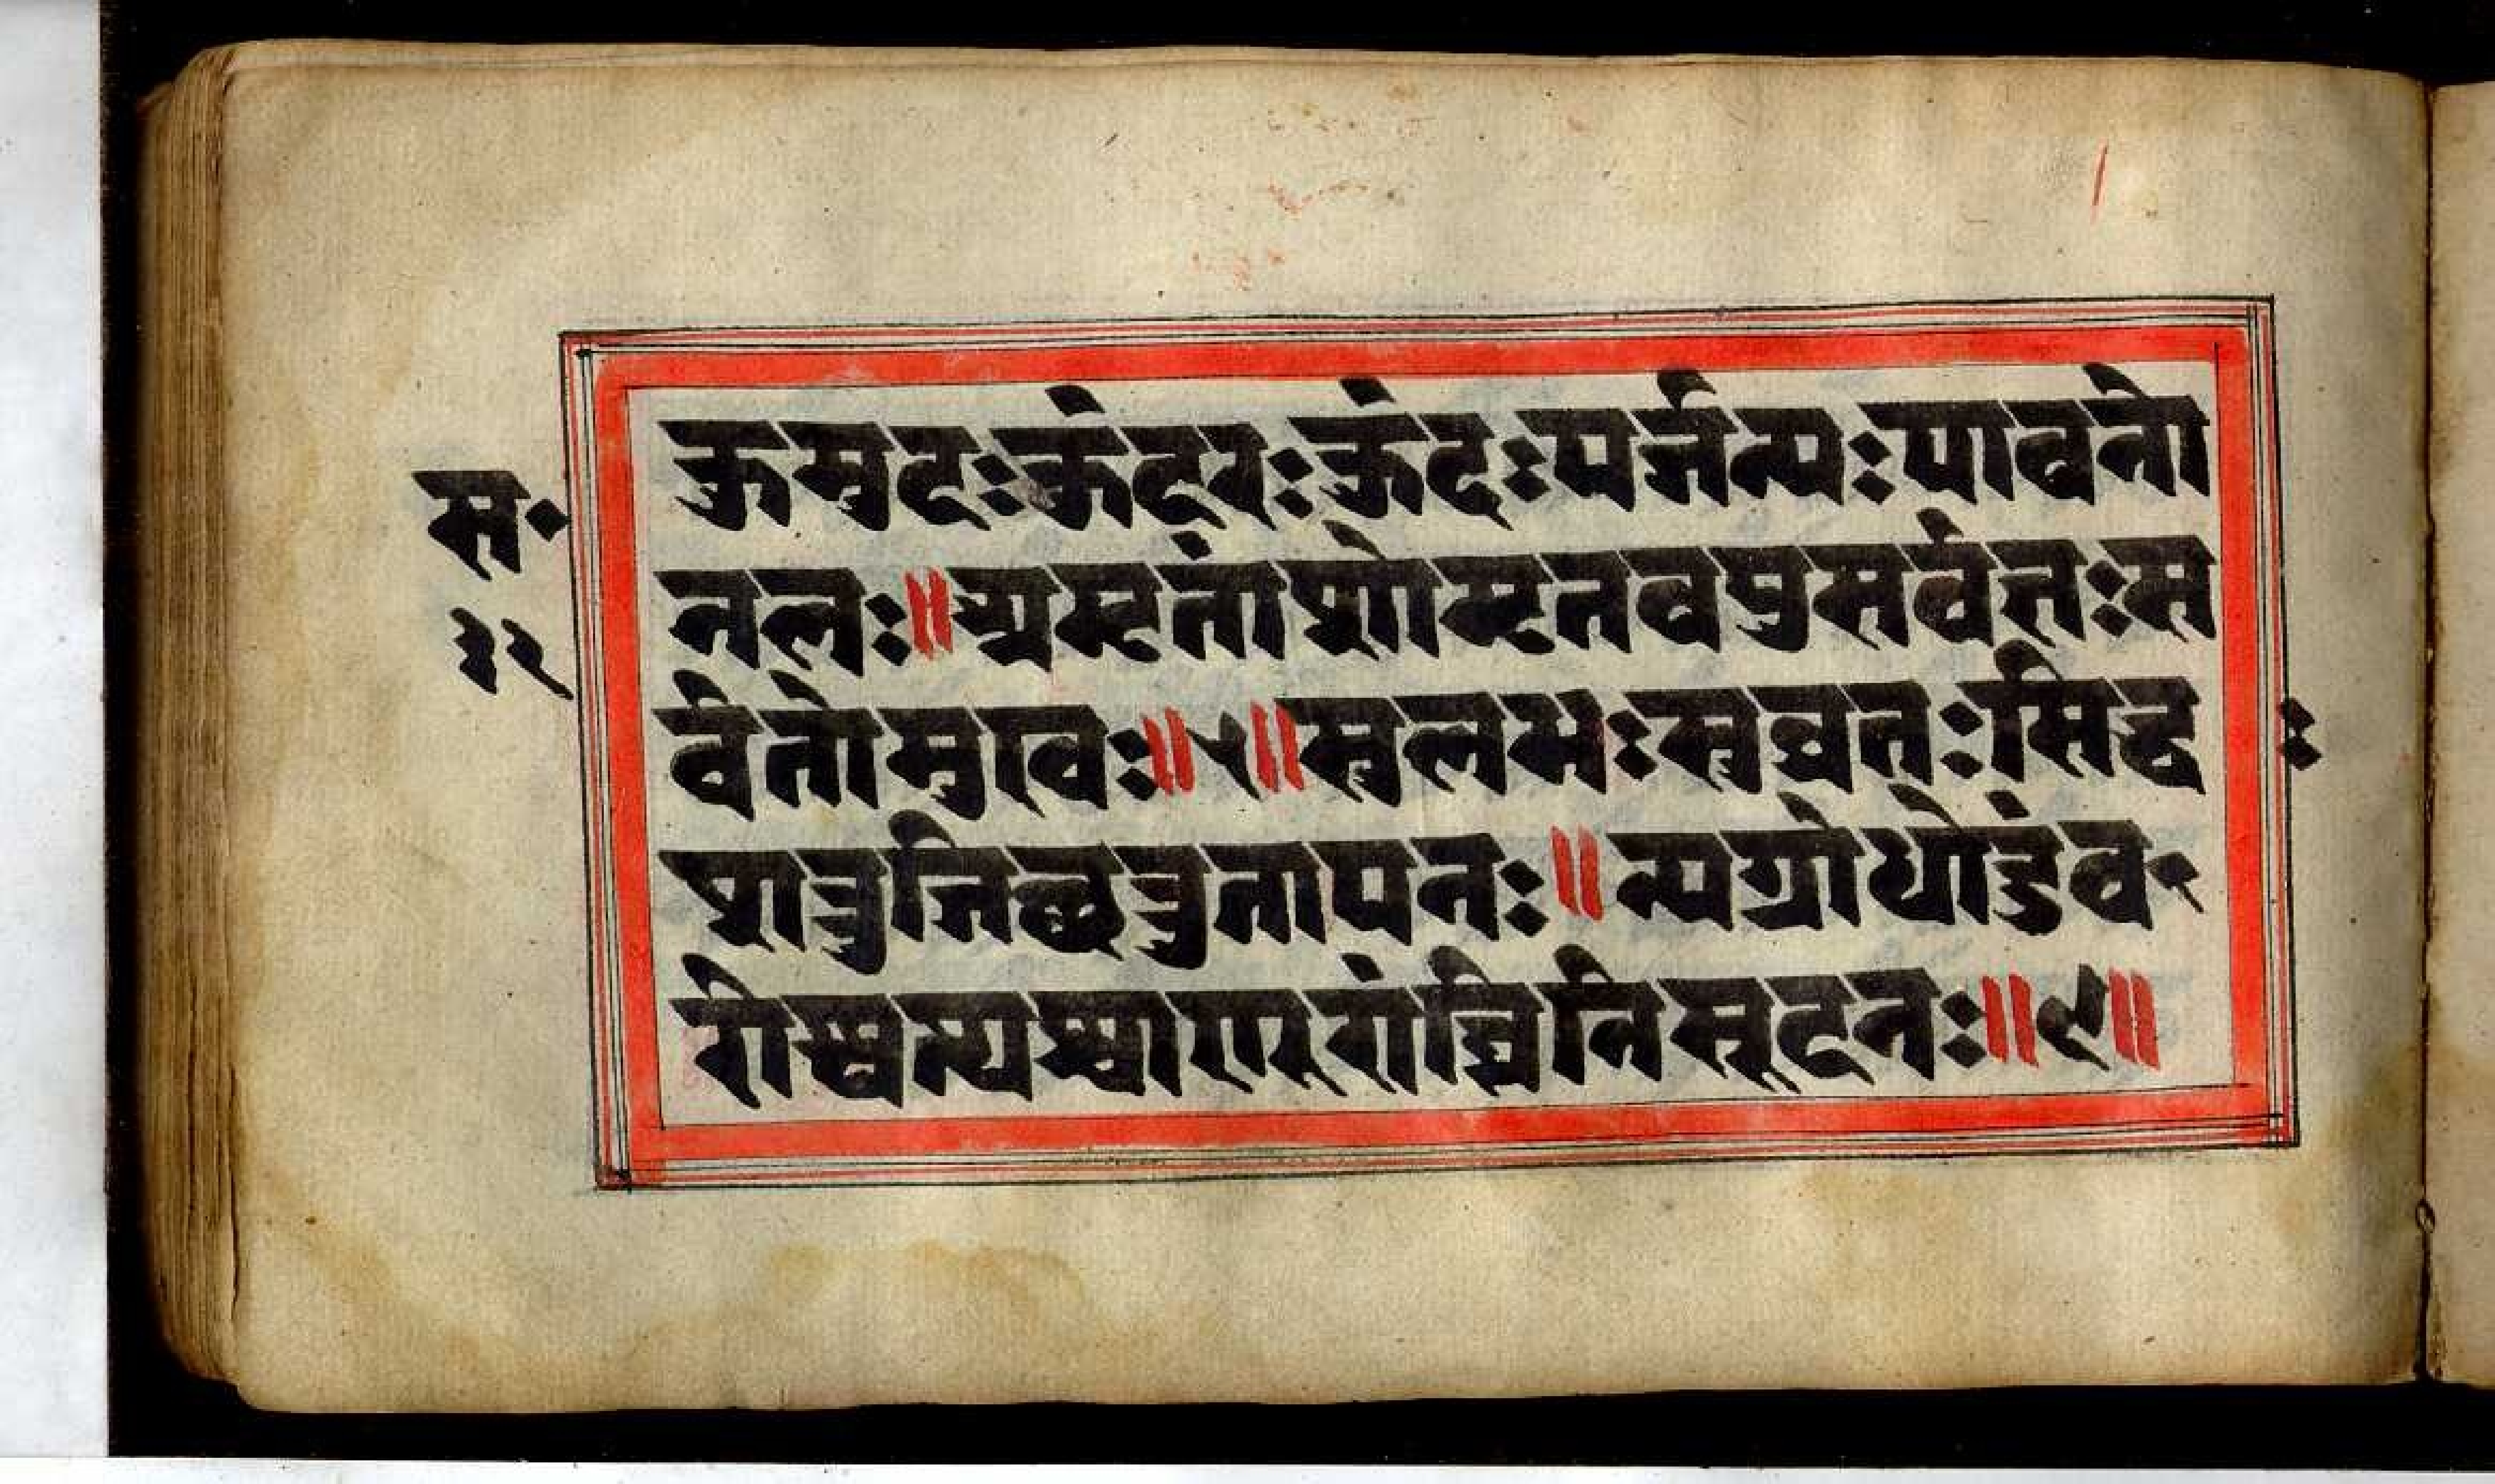 स॰
३२
कुमुदः कुंदरः कुंदः पर्जन्यः पावनो
नलः॥ अमृतांशोमृतवपुसर्वत्तः स
र्वतोमुखः॥५॥ सुलभः सुव्रतः सिद्ध :
शत्रुजिछत्रुतापनः॥ न्यग्रोधोडंव॰
रोस्वत्थश्चाणूरांध्रनिसूदनः॥९॥